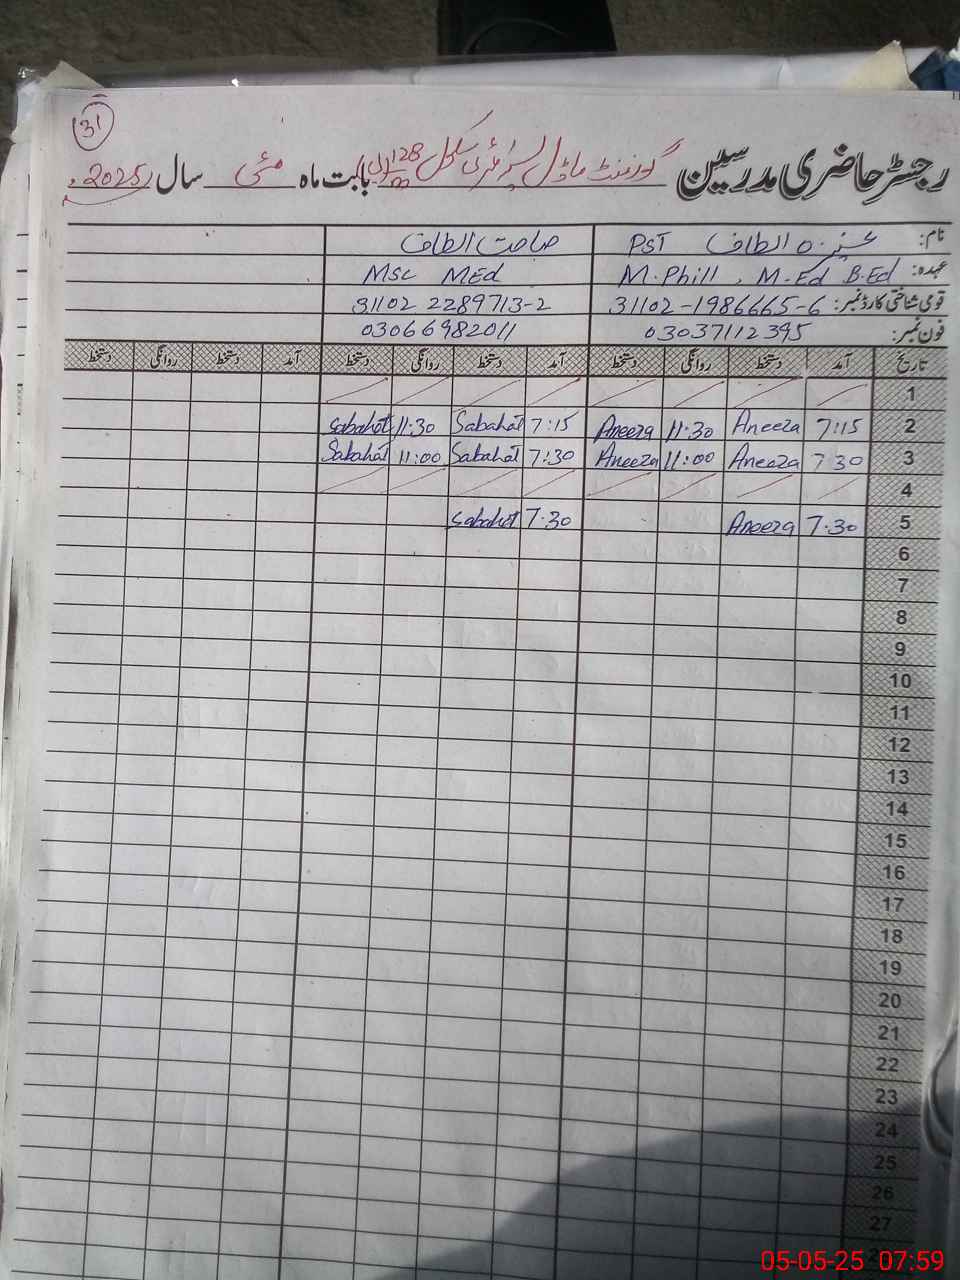 31
رجسٹر حاضری مدرسین گورنمنٹ ماڈل پرائمری سکول 128 بابت ماہ مئی سال 2025ء
نام: عنیزہ الطاف PST صباحت الطاف
عہدہ: M.Phill, M.Ed B.Ed Msc MEd
قومی شناختی کارڈ نمبر: 31102-1986665-6 31102 2289713-2
فون نمبر: 03037112395 03066982011
تاریخ آمد دستخط روانگی دستخط آمد دستخط روانگی دستخط آمد دستخط روانگی دستخط
1
2 7:15 Aneeza 11:30 Aneeza 7:15 Sabahat 11:30 Sabahat
3 7 30 Aneeza 11:00 Aneeza 7:30 Sabahat 11:00 Sabahat
4
5 7.30 Aneeza 7.30 Sabahat
6
7
8
9
10
11
12
13
14
15
16
17
18
19
20
21
22
23
24
25
26
27
05-05-25 07:59